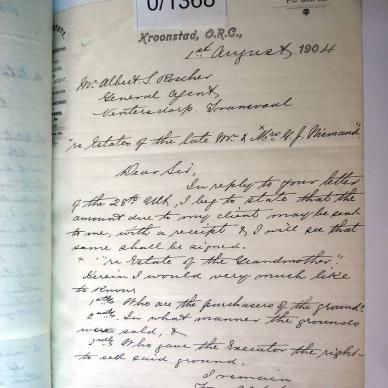 0/1368
P.O. Box
Kroonstad, O.R.C.,
1st August, 1904
Mr Albert S. Roscher
General Agent
Ventersdorp. Transvaal
"re Estates of the late Mr & Mrs H J Niemand"
Dear Sir,
In reply to your letter
of the 28th Ult, I beg to state that the
amount due to my client may be sent
to me, with a receipt & I will see that
same shall be signed.
"re Estate of the Grandmother"
Herein I would very much like
to know
1stly Who are the purchasers of the ground.
2ndly In what manner the grounds
were sold, &
3rdly Who gave the Executor the right
to sell said ground.
I remain